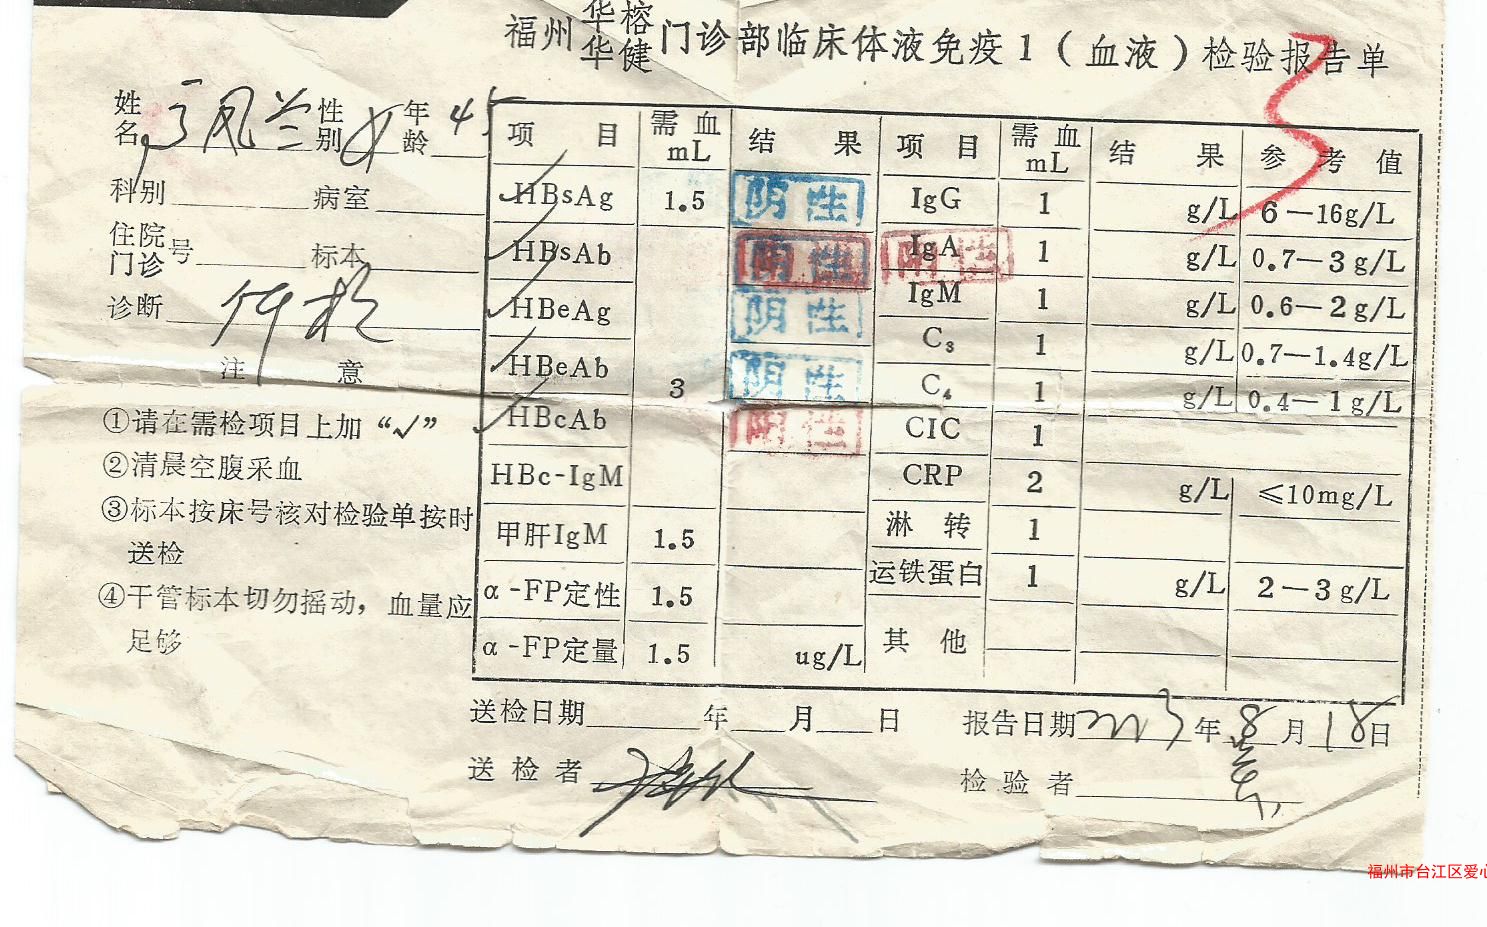 福州华榕华健门诊部临床体液免疫1（血液）检验报告单
姓名 凤兰 性别 女 年龄 45
科别 病室
住院门诊号 标本
诊断 体检
注 意
①请在需检项目上加“√”
②清晨空腹采血
③标本按床号核对检验单按时
送检
④干管标本切勿摇动，血量应
足够
项 目 需血mL 结 果 项 目 需血mL 结 果 参 考 值
HBsAg 1.5 阴性 IgG 1 g/L 6－16g/L
HBsAb 阴性 IgA 阴性 1 g/L 0.7－3g/L
HBeAg 阴性 IgM 1 g/L 0.6－2g/L
HBeAb 3 阴性 C₃ 1 g/L 0.7－1.4g/L
HBcAb C₄ 1 g/L 0.4－1g/L
CIC 1
HBc-IgM CRP 2 g/L ≤10mg/L
甲肝IgM 1.5 淋 转 1
α-FP定性 1.5 运铁蛋白 1 g/L 2－3g/L
α-FP定量 1.5 ug/L 其 他
送检日期 年 月 日 报告日期 年 8 月 18 日
送检者 检验者
福州市台江区爱心